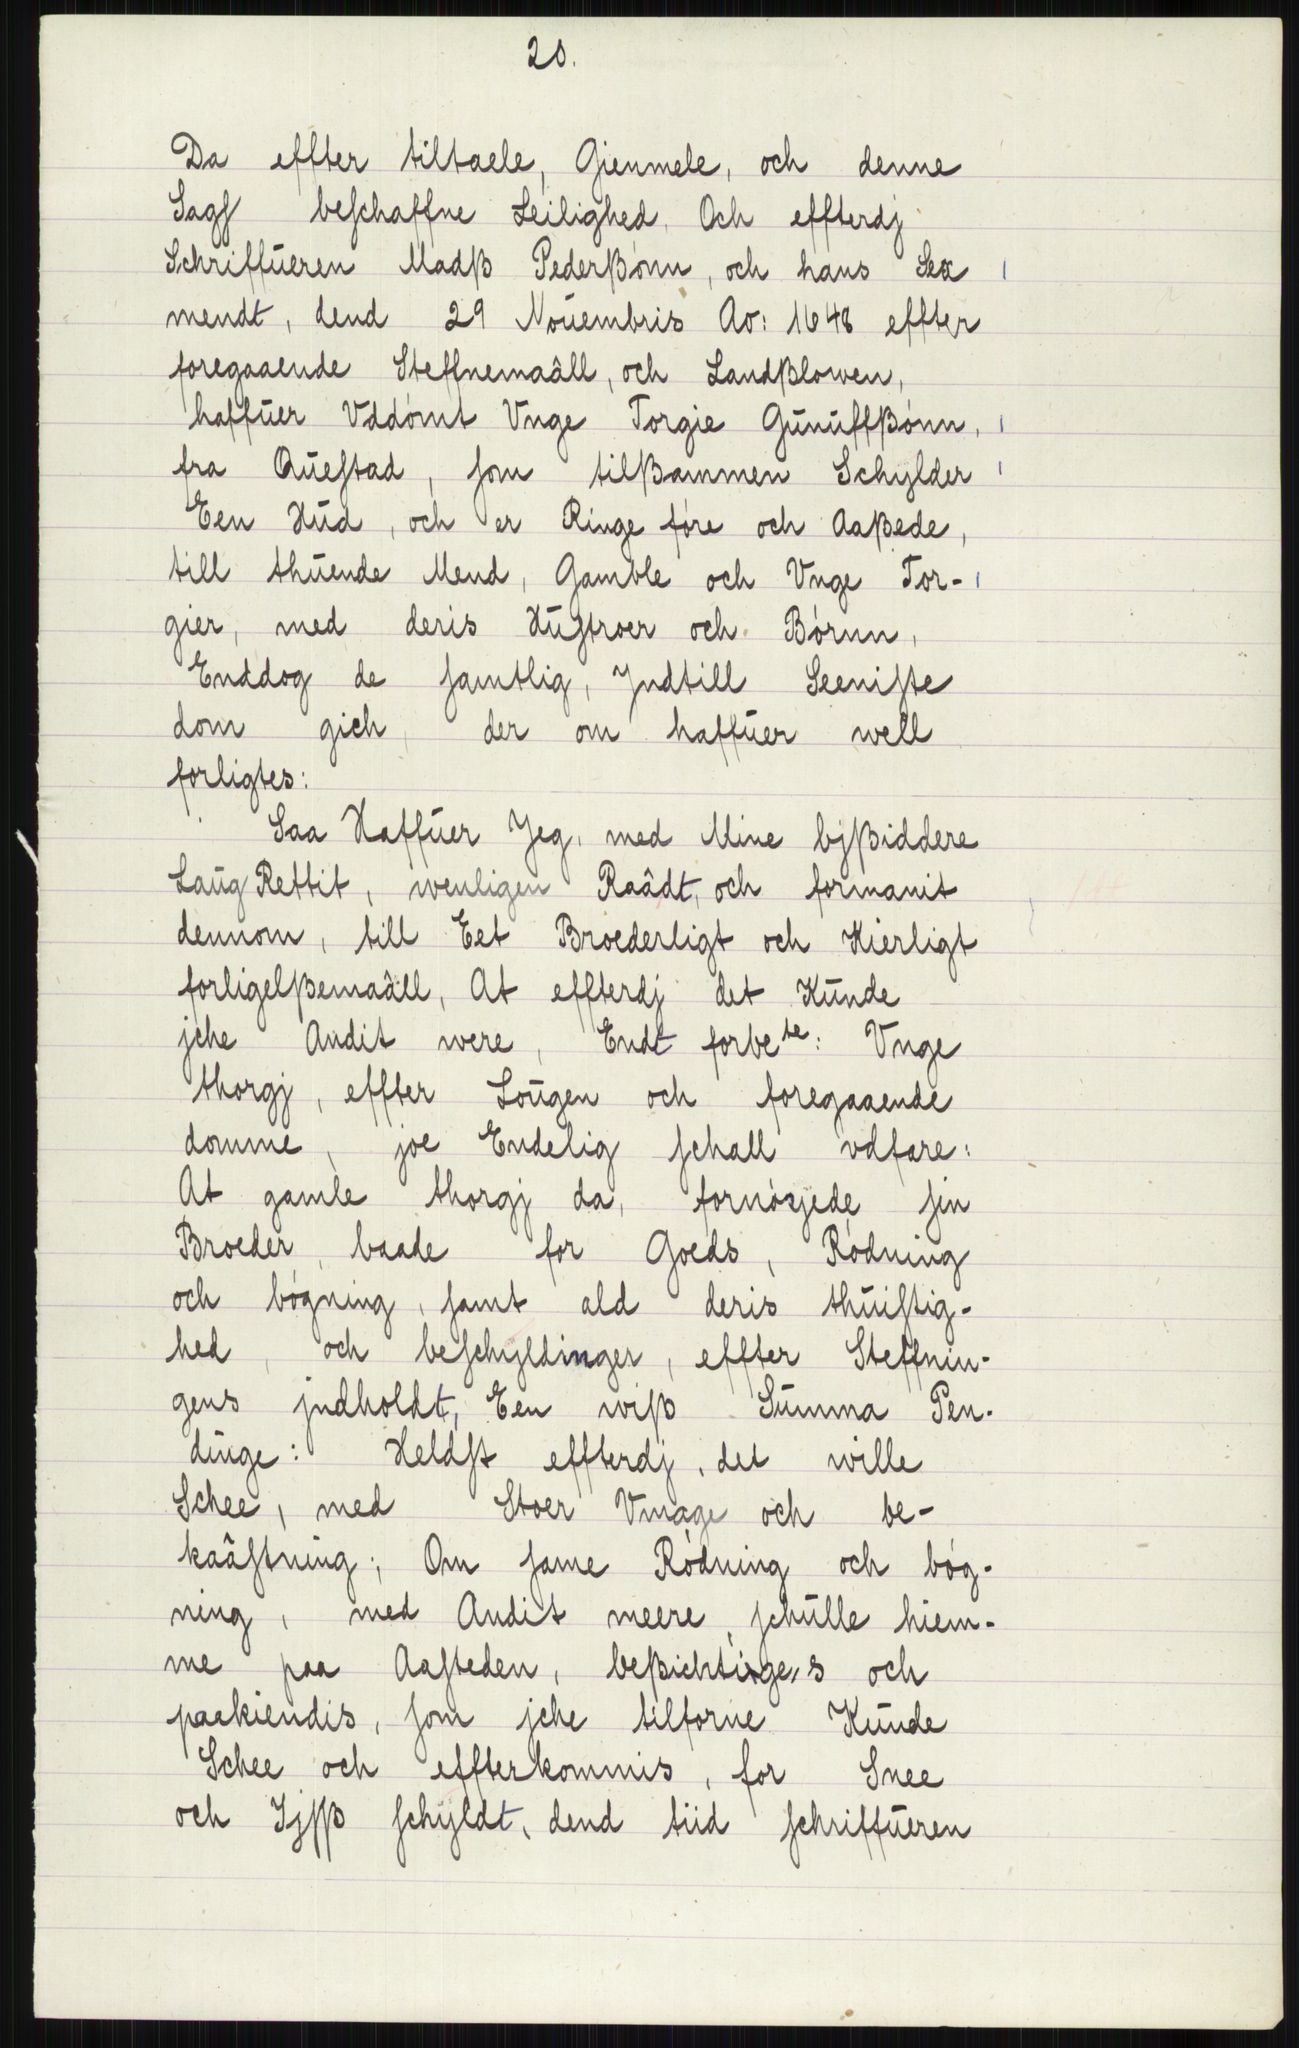 20.
Da effter tiltaele, Gienmele, och denne
Sagſ beſchaffne Leilighed. Och effterdj
Schriffūeren Madß Pederßónn, och hans Sex
mendt, dend 29 Noūembris Ao: 1648 effter
foregaaende Steffnemaâll, och Landßlowen,
haffūer Vddómt Vnge Torgie Gūnūffßónn,
fra Qūeſtad, ſom tilßammen Schylder
Een Hūd, och er Ringe fóre och Aaßede,
till thūende Mend, Gamble och Vnge Tor-
gier, med deris Hūſtroer och Bórnn,
Enddog de ſamtlig, Jndtill Seeniſte
dom gich, der om haffūer well
forligtes:
Saa Haffūer Jeg, med Mine bjßiddere
Laūg Rettit, wenligen Raâdt, och formanit
dennom, till Eet Broederligt och Kierligt
forligelßemaâll, At effterdj det Kūnde
jche Andit were, Endt forbete: Vnge
thorgj, effter Loūgen och foregaaende
domme, joe Endelig ſchall vdfare:
At gamle thorgj da, fornóyede ſin
Broeder, baade for Goeds,Ródning
och bógning, ſamt ald deris thūiſtig-
hed, och beſchyldinger, effter Steffnin-
gens jndholdt, Een wiß Sūmma Pen-
dinge: Heldſt effterdj, det wille
Schee, med Stoer Vmage och be-
kaâſtning; Om ſame Ródning och bóg-
ning, med Andit meere, ſchūlle hiem-
me paa Aaſteden, beßichtiges och
paakiendis, ſom jche tilforne Kūnde
Schee och effterkommis, for Snee
och Ijſß ſchyldt, dend tiid ſchriffūeren